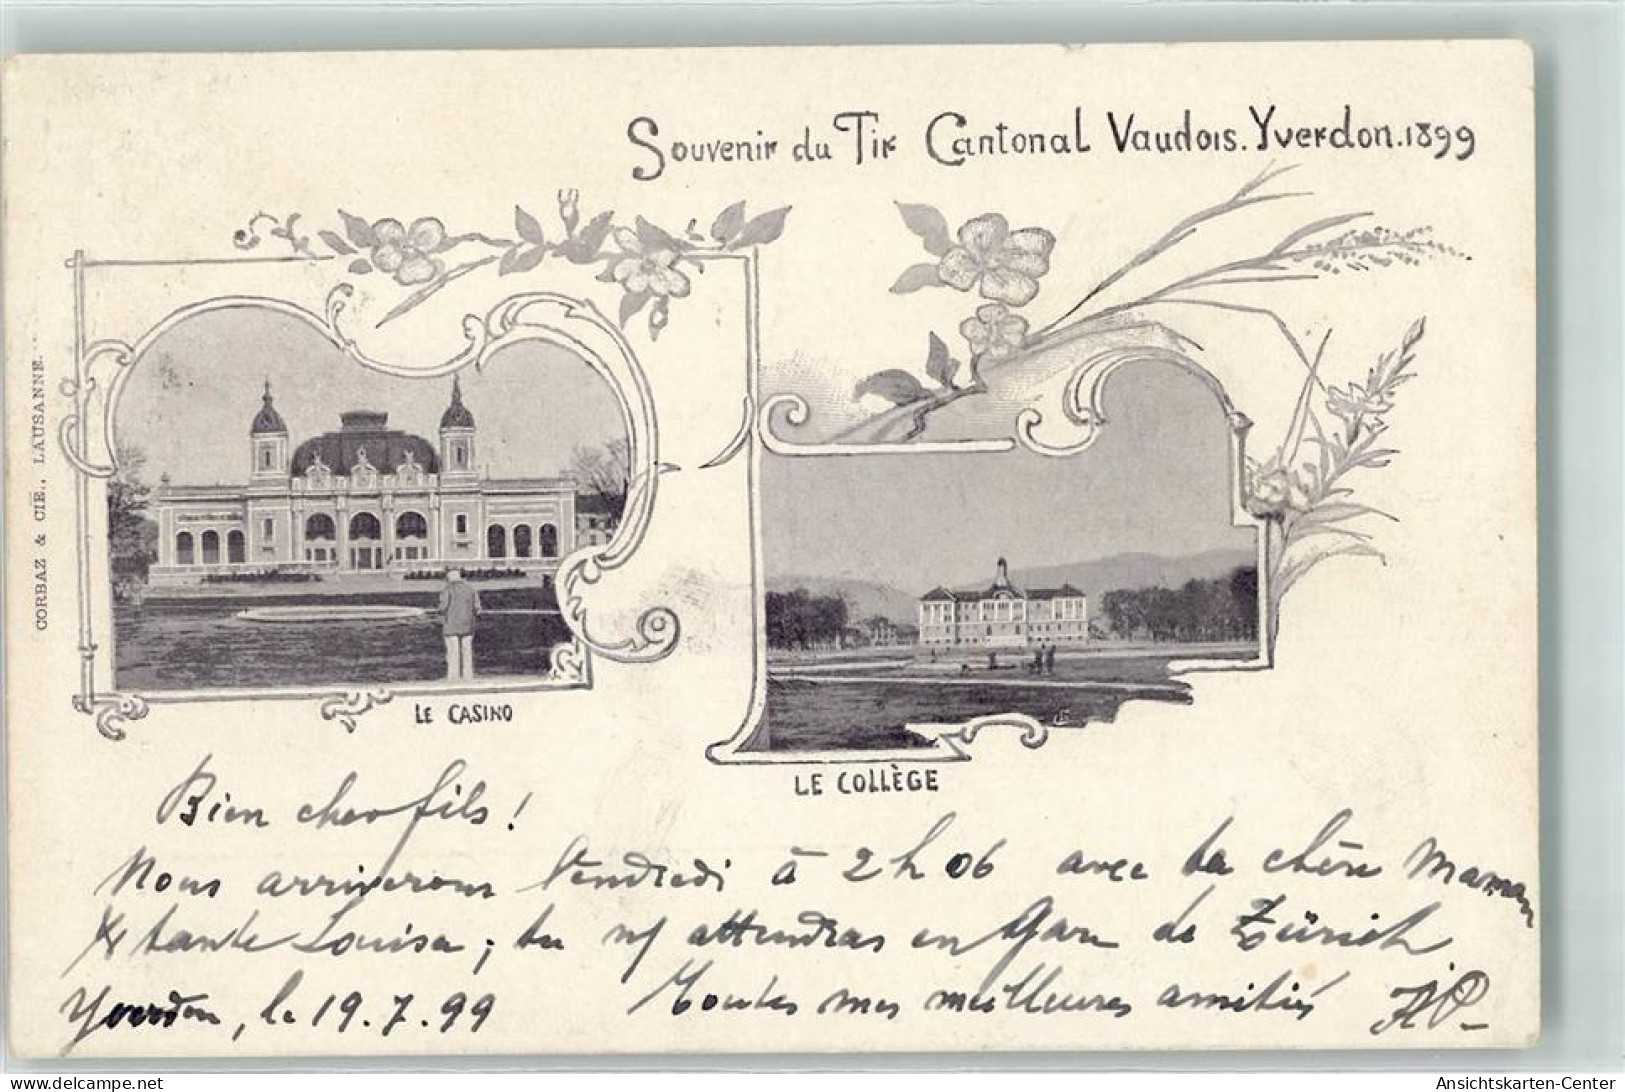 Souvenir du Tir Cantonal Vaudois. Yverdon. 1899
CORBAZ & CIE., LAUSANNE.
LE CASINO
LE COLLÈGE
Bien cher fils !
Nous arriverons Vendredi à 2 h 06 avec ta chère Maman
& tante Louisa ; tu n/ attendras en Gare de Zürich
Yverdon, le 19.7.99 Toutes mes meilleures amitiés
delcampe.net
Ansichtskarten-Center